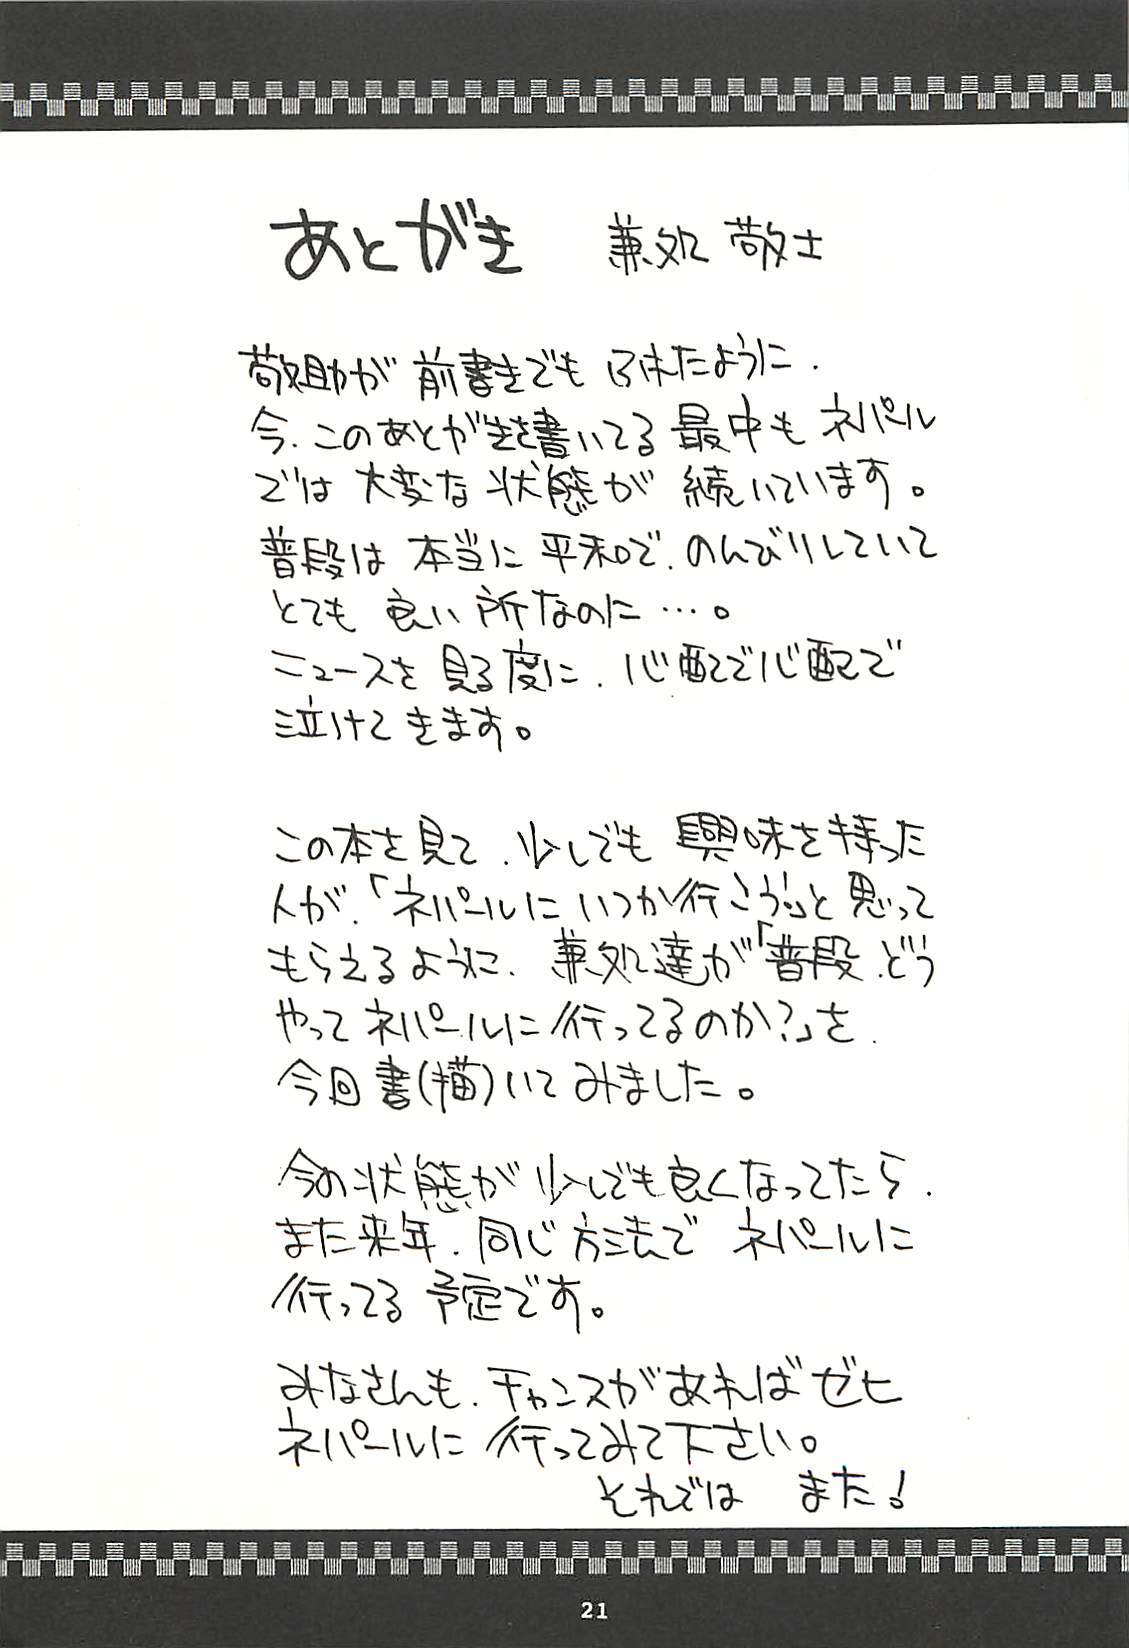 あとがき　兼処敬士
敬助が前書きでもふれたように、
今、このあとがきを書いてる最中もネパール
では大変な状態が続いています。
普段は本当に平和で、のんびりしていて
とても良い所なのに…。
ニュースを見る度に、心配で心配で
泣けてきます。
この本を見て、少しでも興味を持った
人が、「ネパールにいつか行こう。」と思って
もらえるように、兼処達が「普段、どう
やってネパールに行ってるのか?」を、
今回書(描)いてみました。
今の状態が少しでも良くなってたら、
また来年、同じ方法でネパールに
行ってる予定です。
みなさんも、チャンスがあればゼヒ
ネパールに行ってみて下さい。
それでは　また!
21